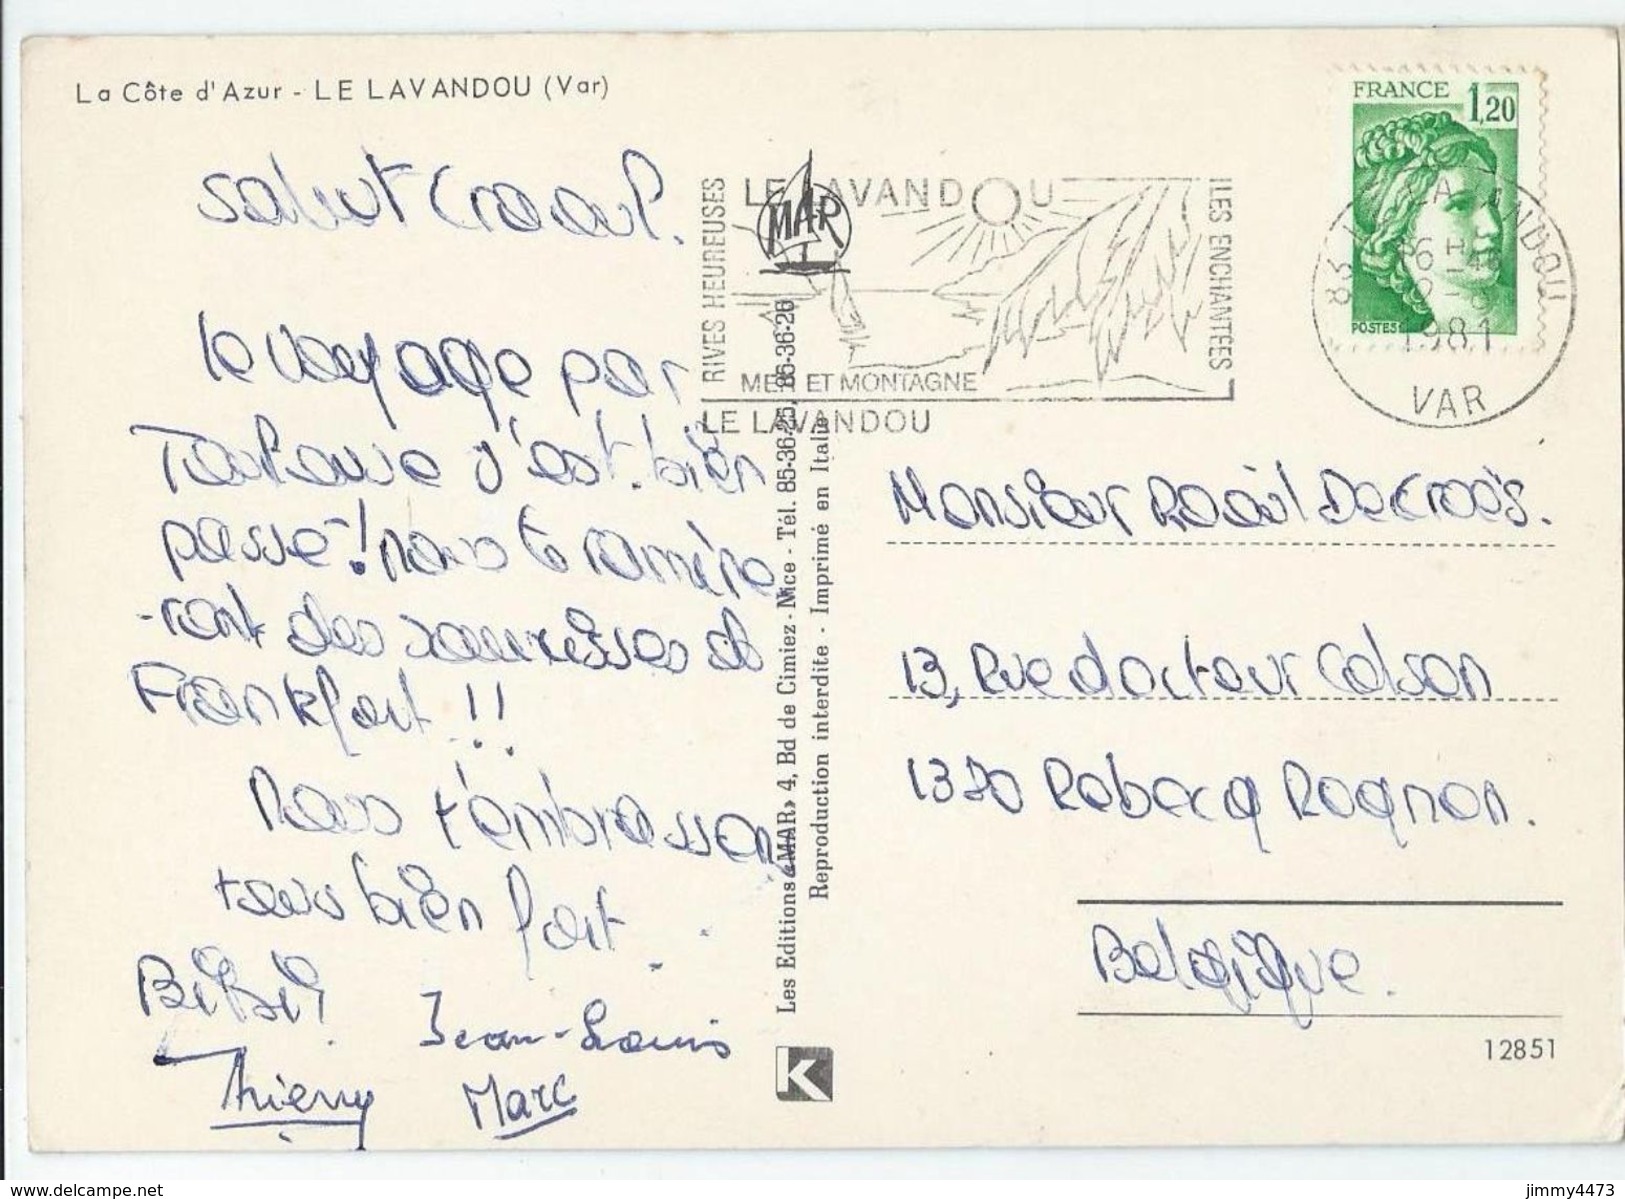 La Côte d'Azur - LE LAVANDOU (Var)
FRANCE 1,20
POSTES
LE LAVANDOU
RIVES HEUREUSES
ILES ENCHANTÉES
MER ET MONTAGNE
LE LAVANDOU
MAR
83 LE LAVANDOU
1981
VAR
salut Craoul.
le voyage par
Toulouse s'est bien
passé! nous te ramène
-ront des saucisses de
Frankfort !!
Nous t'embrasson
tous bien fort.
BiBi
Jean-Louis
Thierry Marc
Les Editions «MAR» 4, Bd de Cimiez - Nice - Tél. 85-36-25, 85-36-26
Reproduction interdite - Imprimé en Italie
K
Monsieur Raoül Decroës.
13, Rue docteur Colson
1320 Robecq Rognon.
Belgique.
12851
jimmy4473
www.delcampe.net